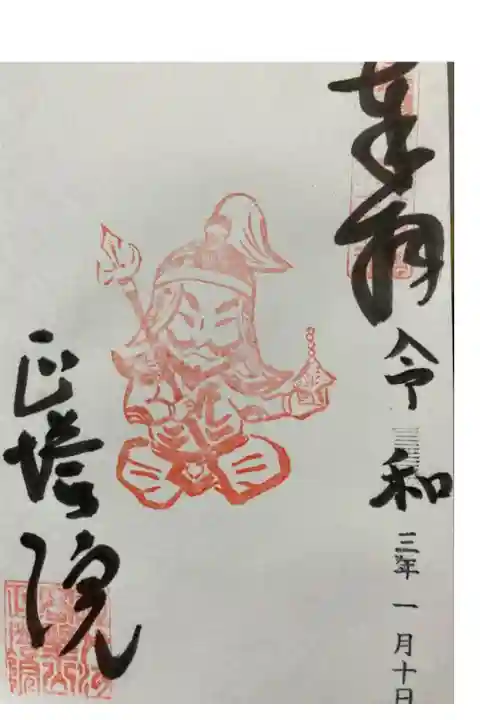 奉拝
令和
三年一月十日
正塔院